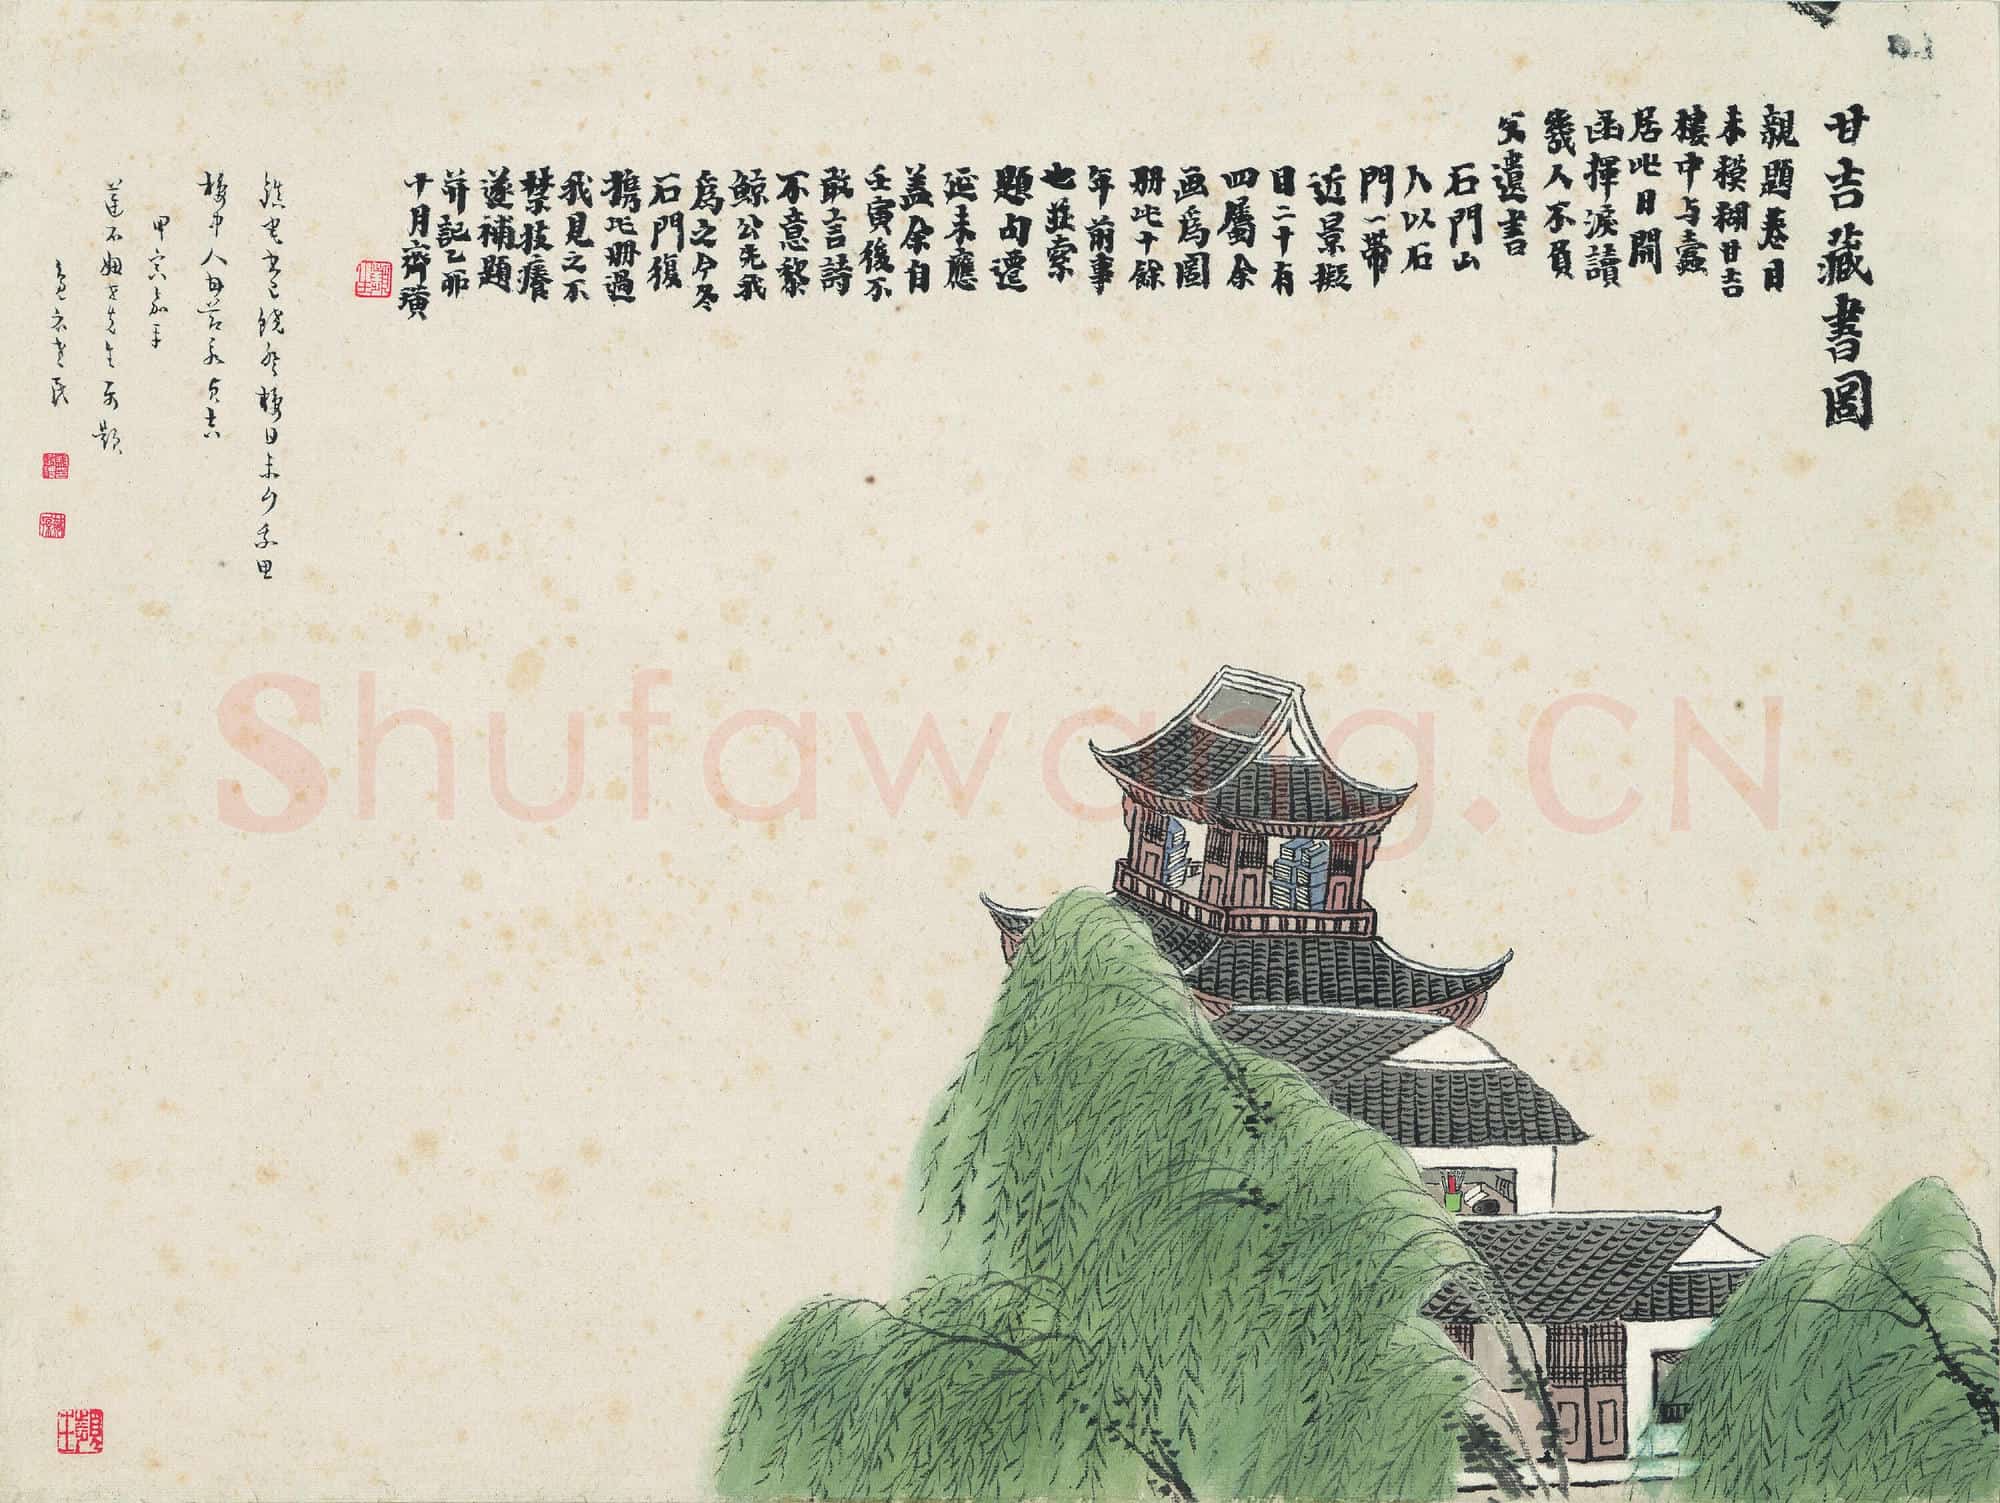 甘吉藏書圖
親題卷目
未模糊甘吉
樓中与蠹
居此日開
函揮淚讀
幾人不負
父遺書
石門山
人以石
門一帶
近景擬
日二十有
四屬余
画爲圖
册此十餘
年前事
也並索
題句遷
延未應
蓋余自
壬寅後不
敢言詩
不意黎
鯨公先我
爲之今冬
石門復
携此册過
我見之不
禁技癢
遂補題
并記乙卯
十月齊璜
樓中人
甲寅
Shufawang.CN